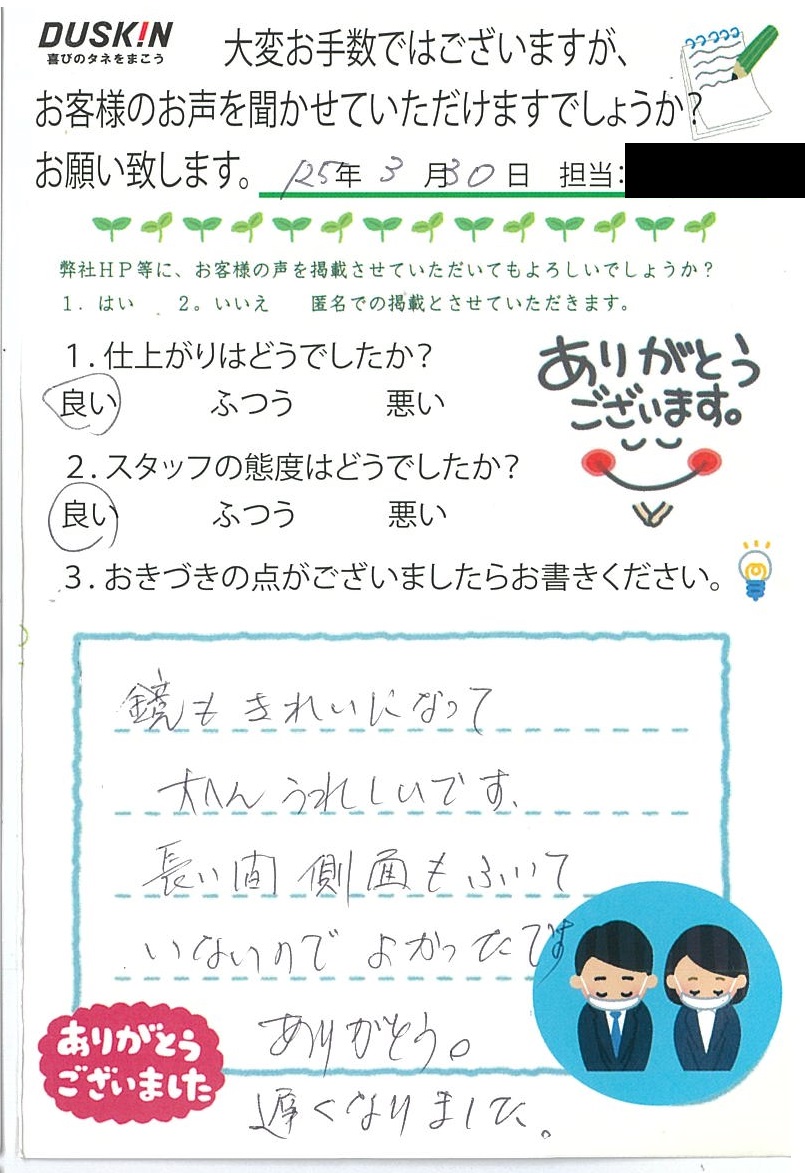 DUSK!N
喜びのタネをまこう
大変お手数ではございますが、
お客様のお声を聞かせていただけますでしょうか?
お願い致します。 '25年 3月30日 担当:
弊社HP等に、お客様の声を掲載させていただいてもよろしいでしょうか?
1. はい 2。いいえ 匿名での掲載とさせていただきます。
1.仕上がりはどうでしたか?
良い ふつう 悪い
ありがとう
ございます。
2.スタッフの態度はどうでしたか?
良い ふつう 悪い
3.おきづきの点がございましたらお書きください。
鏡もきれいになって
大へんうれしいです、
長い間側面もふいて
いないのでよかったです
ありがとう。
遅くなりました。
ありがとう
ございました